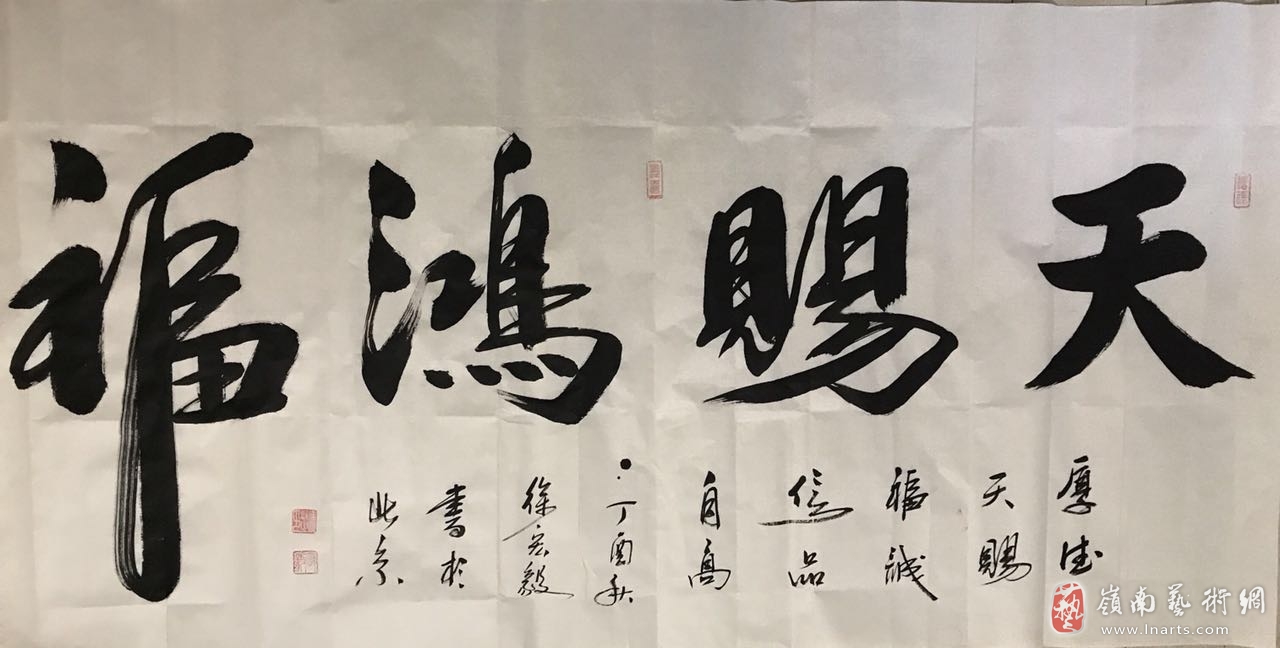 天賜鴻福
厚德
天賜
福誠
信品
自高
丁酉秋
徐宏毅
書於
北京
藝 嶺南藝術網
www.lnarts.com